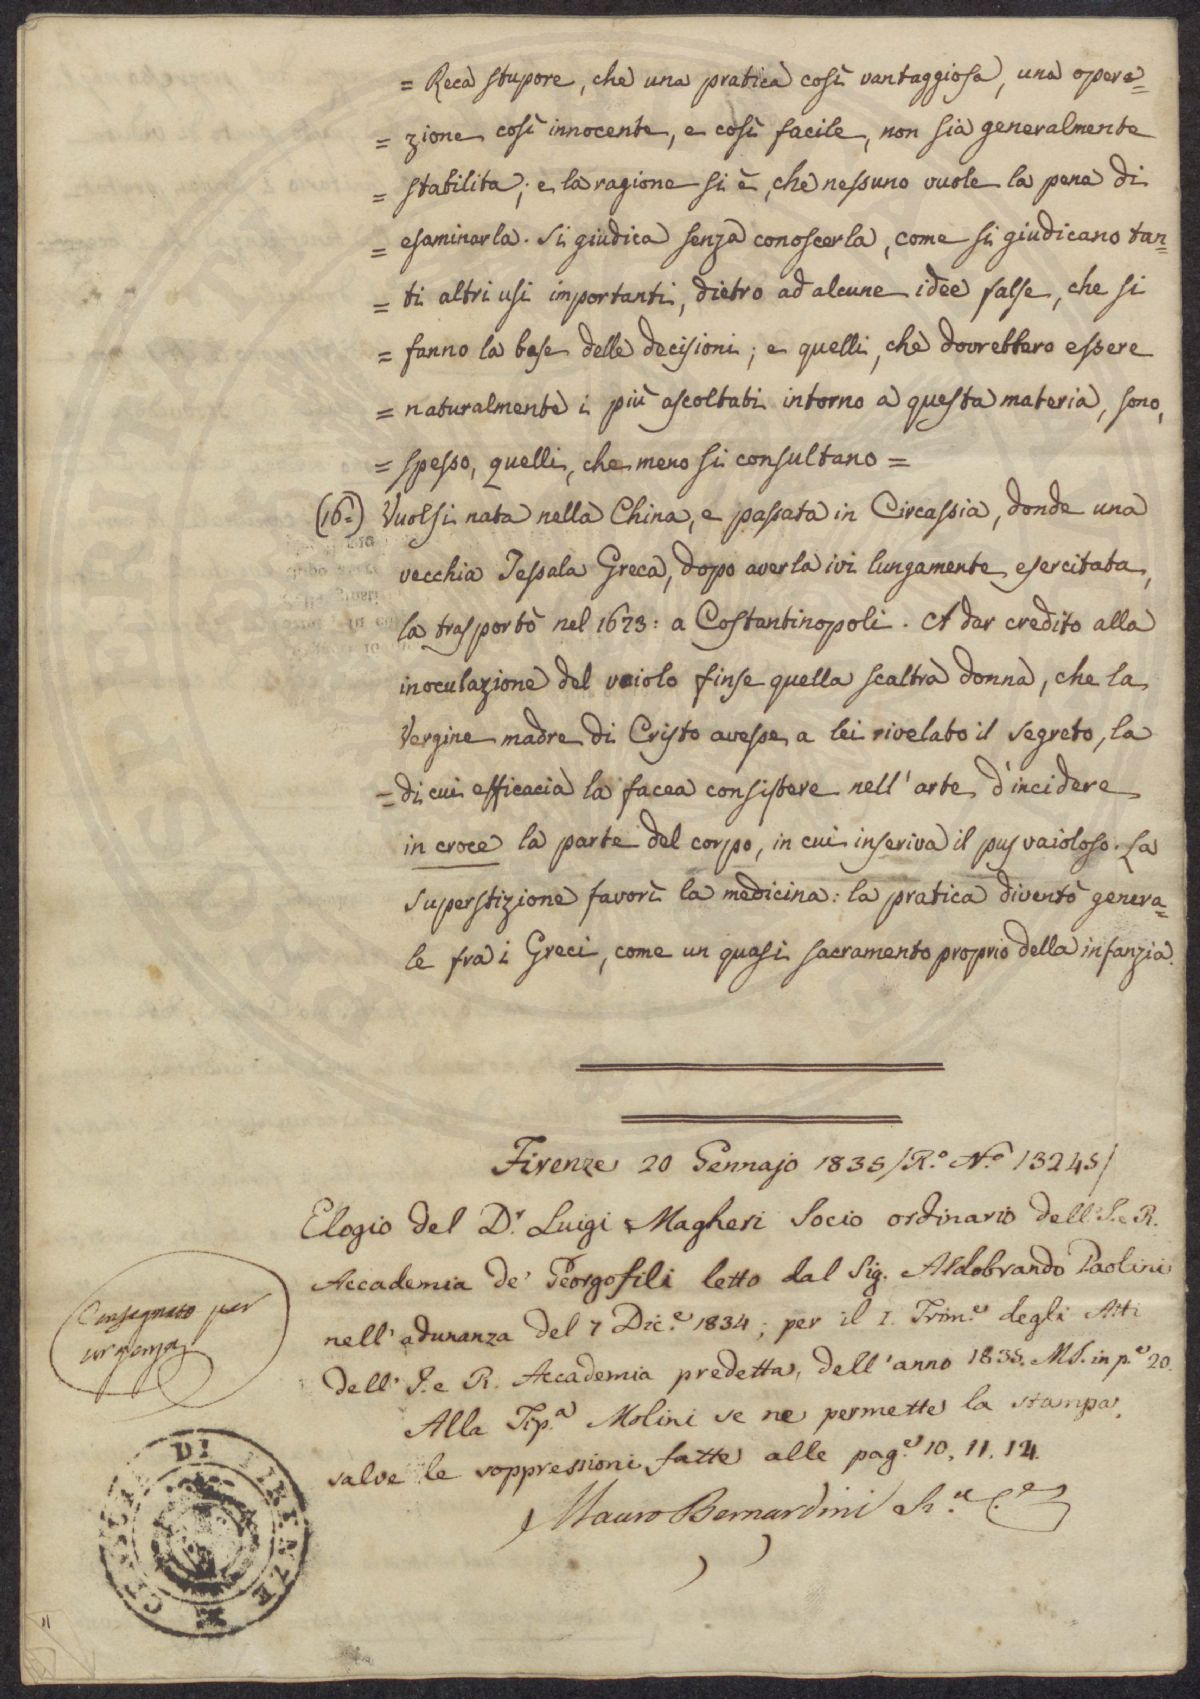 = Reca stupore, che una pratica così vantaggiosa, una opera=
= zione così innocente, e così facile, non sia generalmente
= stabilita; e la ragione si è, che nessuno vuole la pena di
= esaminarla. Si giudica senza conoscerla, come si giudicano tan=
= ti altri usi importanti, dietro ad alcune idee false, che si
= fanno la base delle decisioni; e quelli, che dovrebbero essere
= naturalmente i più ascoltati intorno a questa materia, sono,
= spesso, quelli, che meno si consultano =
(16.) Vuolsi nata nella China, e passata in Circassia, donde una
vecchia Tessala Greca, dopo averla ivi lungamente esercitata,
la trasportò nel 1673: a Costantinopoli. A dar credito alla
inoculazione del vaiolo finse quella scaltra donna, che la
Vergine madre di Cristo avesse a lei rivelato il segreto, la
= di cui efficacia la facea consistere nell'arte d'incidere
in croce la parte del corpo, in cui inseriva il pus vaioloso. La
superstizione favorì la medicina: la pratica diventò genera=
le fra i Greci, come un quasi sacramento proprio della infanzia.
Firenze 20 Gennajo 1835 /R.º N.º 13245/
Elogio del D.r Luigi Magheri Socio ordinario dell'I. e R.
Accademia de' Georgofili letto dal Sig. Aldobrando Paolini
nell'adunanza del 7 Dic.e 1834; per il I. Trim.e degli Atti
dell'I. e R. Accademia predetta, dell'anno 1835. MS. in p.e 20.
Consegnato per
urgenza
Alla Tip.a Molini se ne permette la stampa,
salve le soppressioni fatte alle pag.e 10. 11. 14.
Mauro Bernardini
DI FIRENZE
11